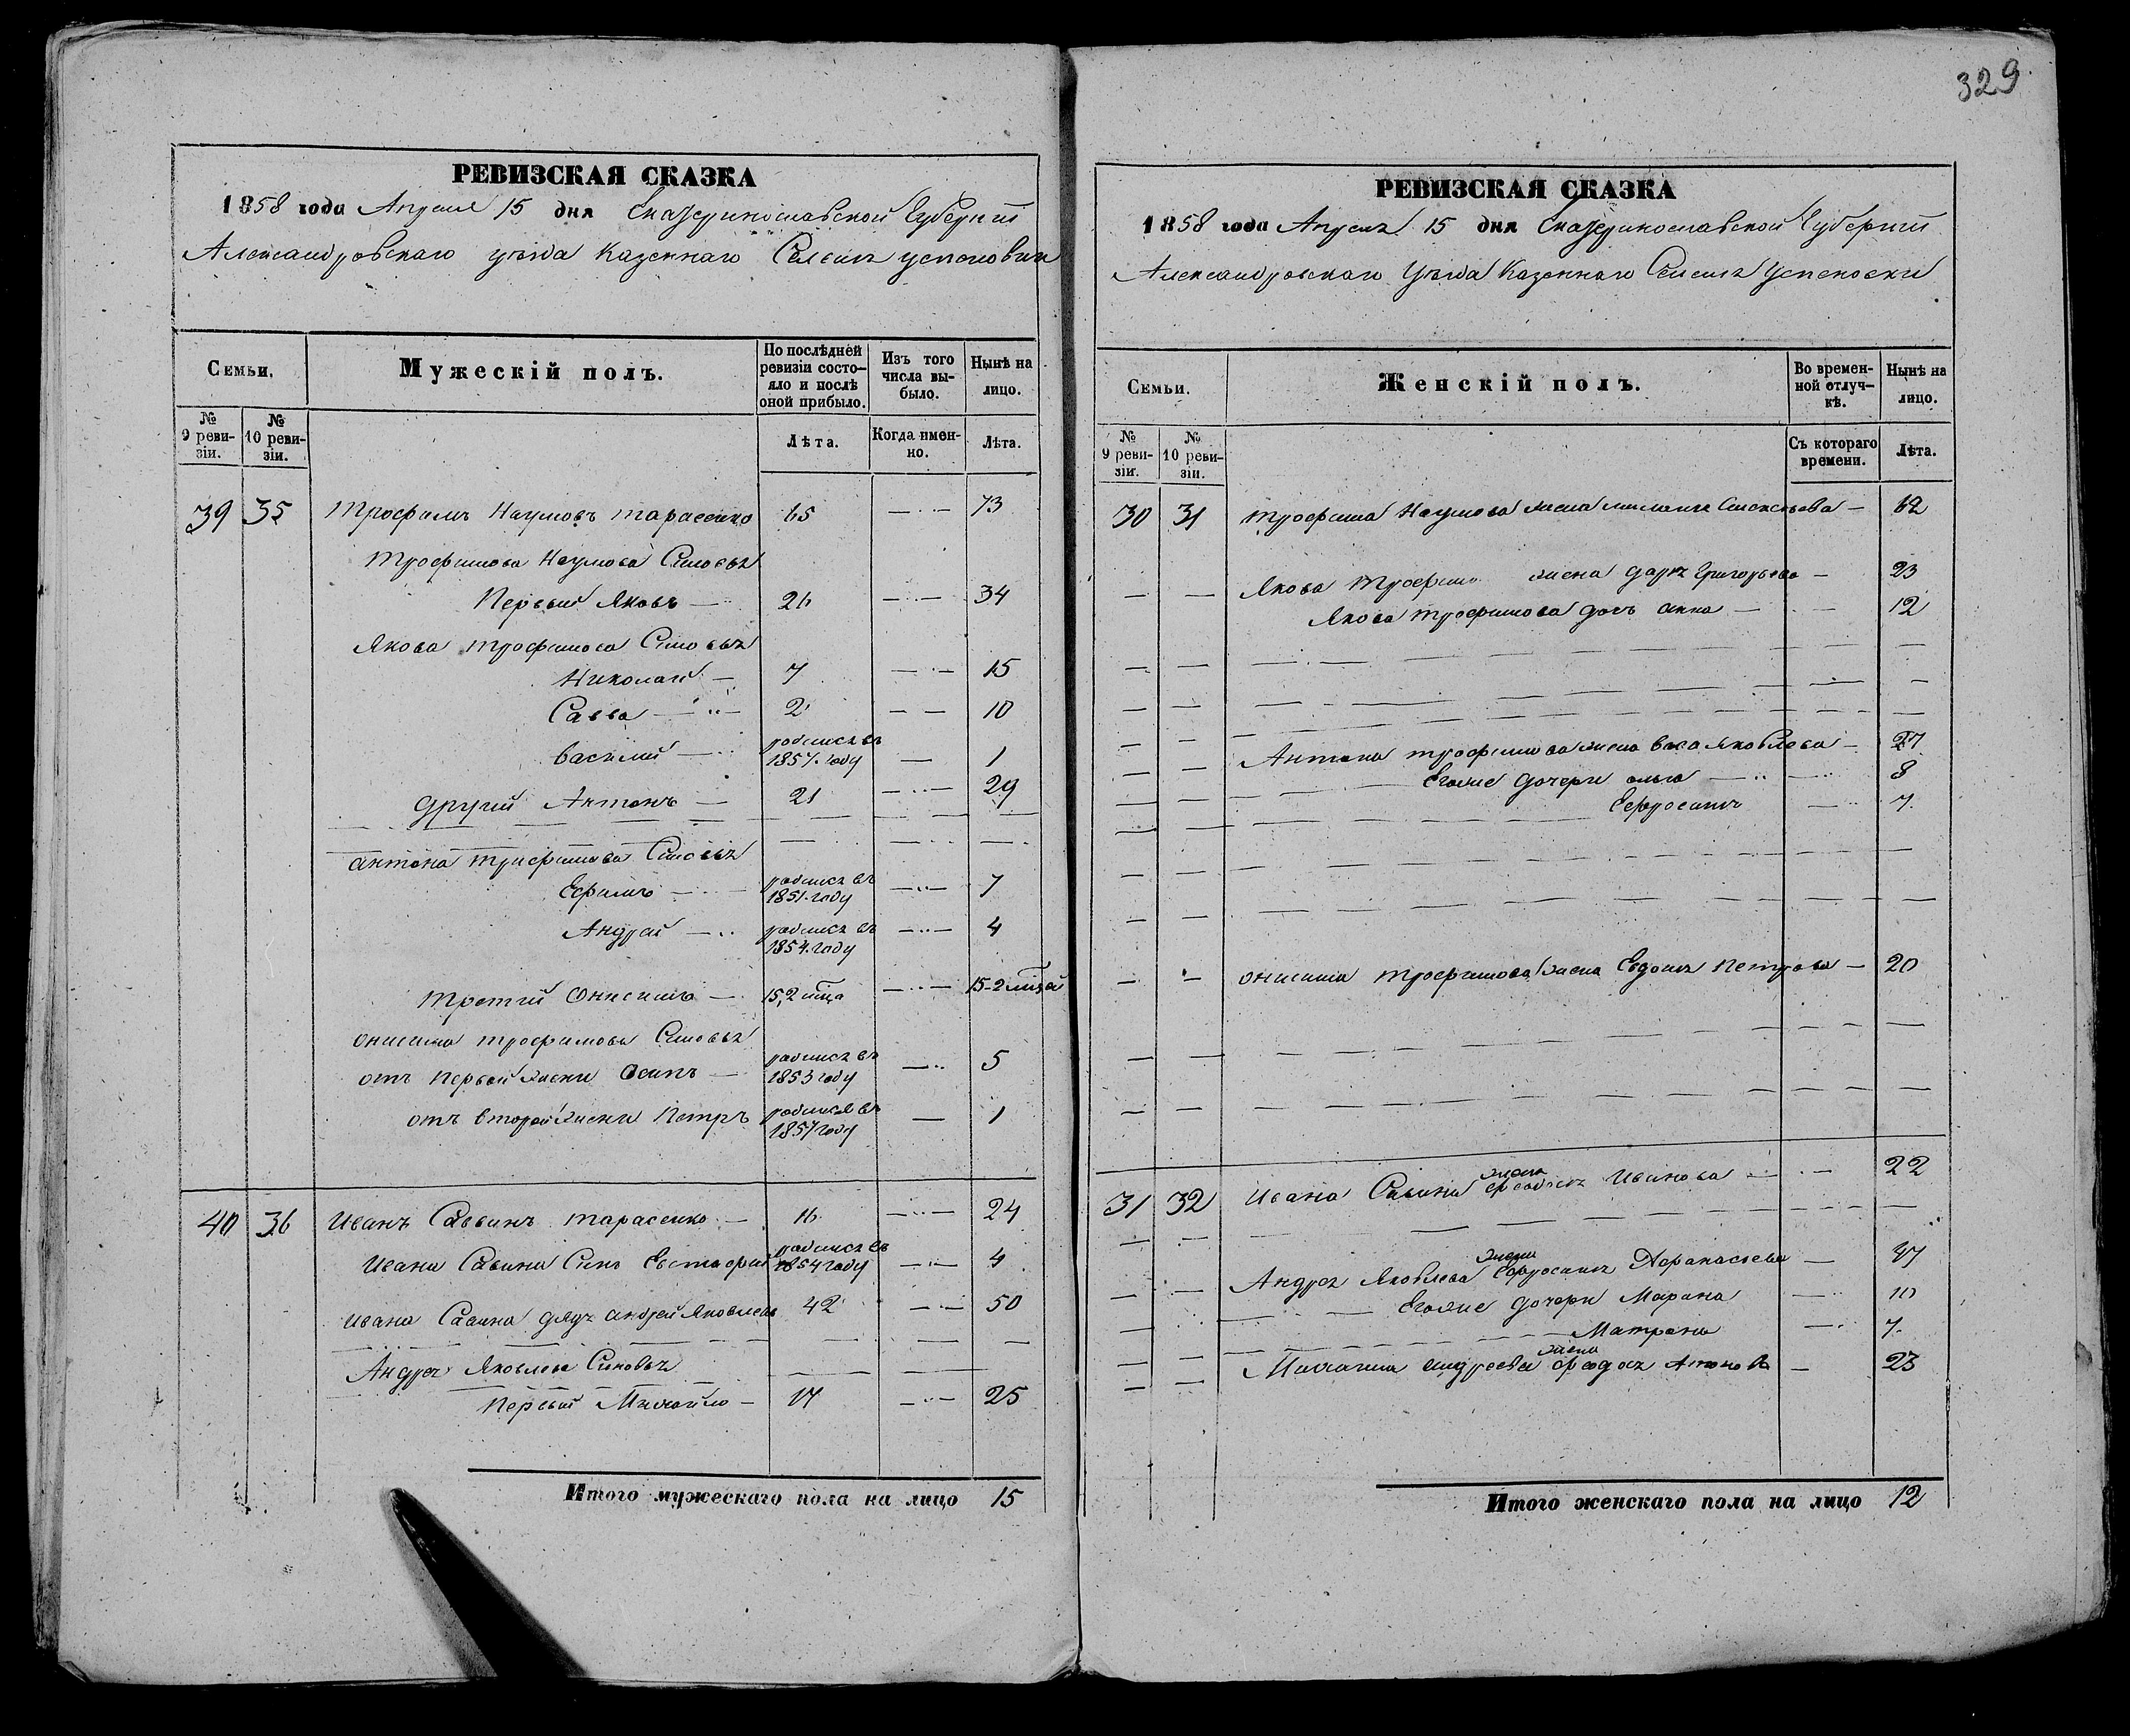 329.
РЕВИЗСКАЯ СКАЗКА
1858 года Апреля 15 дня Екатеринославской Губернии
Александровского уезда Казеннаго Селения
Семьи.
Мужескій полъ.
По послѣдней ревизіи состояло и послѣ оной прибыло.
Изъ того числа выбыло.
Нынѣ на лицо.
№ 9 ревизіи.
№ 10 ревизіи.
Лѣта.
Когда именно.
Лѣта.
39 35 Трофимъ Наумовъ Тарасенко 65 — 73
Трофимова Наумова Сыновья
Первый Яковъ — 26 — 34
Якова Трофимова Сыновья
Николай — 7 — 15
Савва — 2 — 10
Василий — родился въ 1857 году — 1
другий Антонъ — 21 — 29
Антона Трофимова Сыновья
Ефимъ — родился въ 1851 году — 7
Андрей — родился въ 1854 году — 4
третий Онисимъ — 15,2 мца — 15-2 мца
Онисима Трофимова Сыновья
отъ Первой жены Осипъ — родился въ 1853 году — 5
отъ второй жены Петръ родился въ 1857 году — 1
40 36 Иванъ Саввинъ Тарасенко — 16 — 24
Ивана Савина Сынъ Евстафий родился въ 1854 году — 4
Ивана Савина дядя Андрей Яковлевъ 42 — 50
Андрея Яковлева Сыновья
Первый Михайло — 17 — 25
Итого мужескаго пола на лицо 15
РЕВИЗСКАЯ СКАЗКА
1858 года Апреля 15 дня Екатеринославской Губернии
Александровскаго Уезда Казеннаго Селения
Семьи.
Женскій полъ.
Во временной отлучкѣ.
Нынѣ на лицо.
№ 9 ревизіи.
№ 10 ревизіи.
Съ котораго времени.
Лѣта.
30 31 Трофима Наумова жена — 62
Якова Трофим. жена Дарья Григорьева — 23
Якова Трофимова дочь Анна — 12
Антона Трофимова жена Васа Яковлева — 27
Егоже дочери Ольга — 8
Ефросинья — 7
Онисима Трофимова жена Евдокия Петрова — 20
31 32 Ивана Савина жена Феодосия Иванова — 22
Андрея Яковлева жена Ефросинья Афанасьева — 47
Егоже дочери Марина — 10
Матрена — 7.
Михаила Андреева жена Федосья — 23
Итого женскаго пола на лицо 12